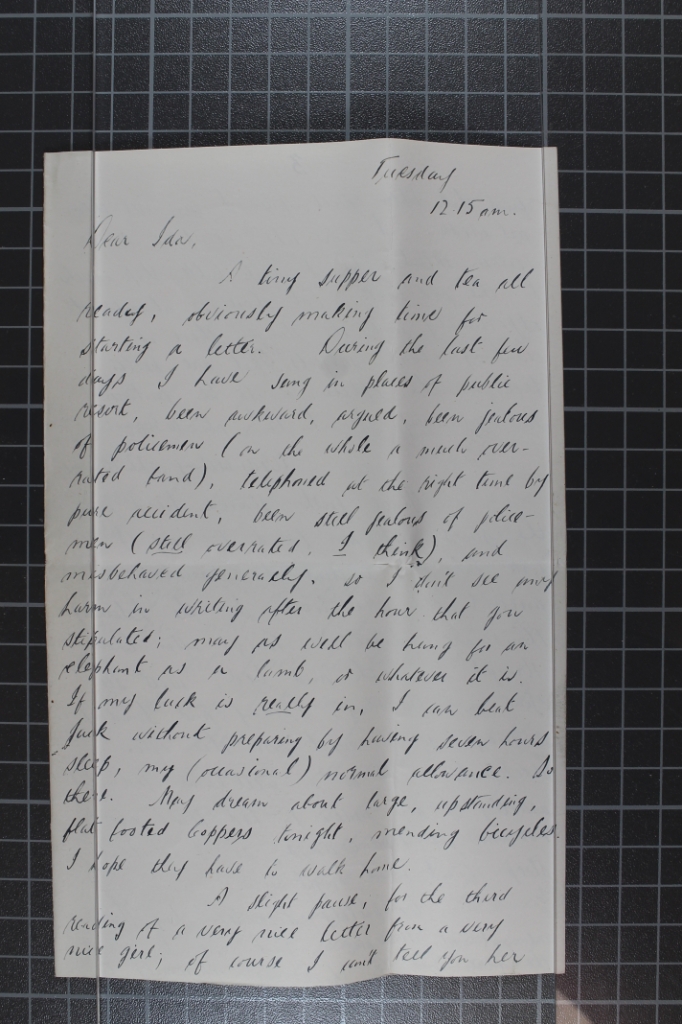 Tuesday
12.15 am.
Dear Ida,
A tiny supper and tea all
ready, obviously making time for
starting a letter. During the last few
days I have sung in places of public
resort, been awkward, argued, been jealous
of policemen (on the whole a much over-
rated band), telephoned at the right time by
pure accident, been still jealous of police-
men (still overrated, I think), and
misbehaved generally. so I don't see any
harm in writing after the hour that you
stipulated; may as well be hung for an
elephant as a lamb, or whatever it is.
If my luck is really in, I can beat
Jack without preparing by having seven hours
sleep, my (occasional) normal allowance. So
there. May dream about large, upstanding,
flat footed Coppers tonight, mending bicycles.
I hope they have to walk home.
A slight pause, for the third
reading of a very nice letter from a very
nice girl; of course I can't tell you her